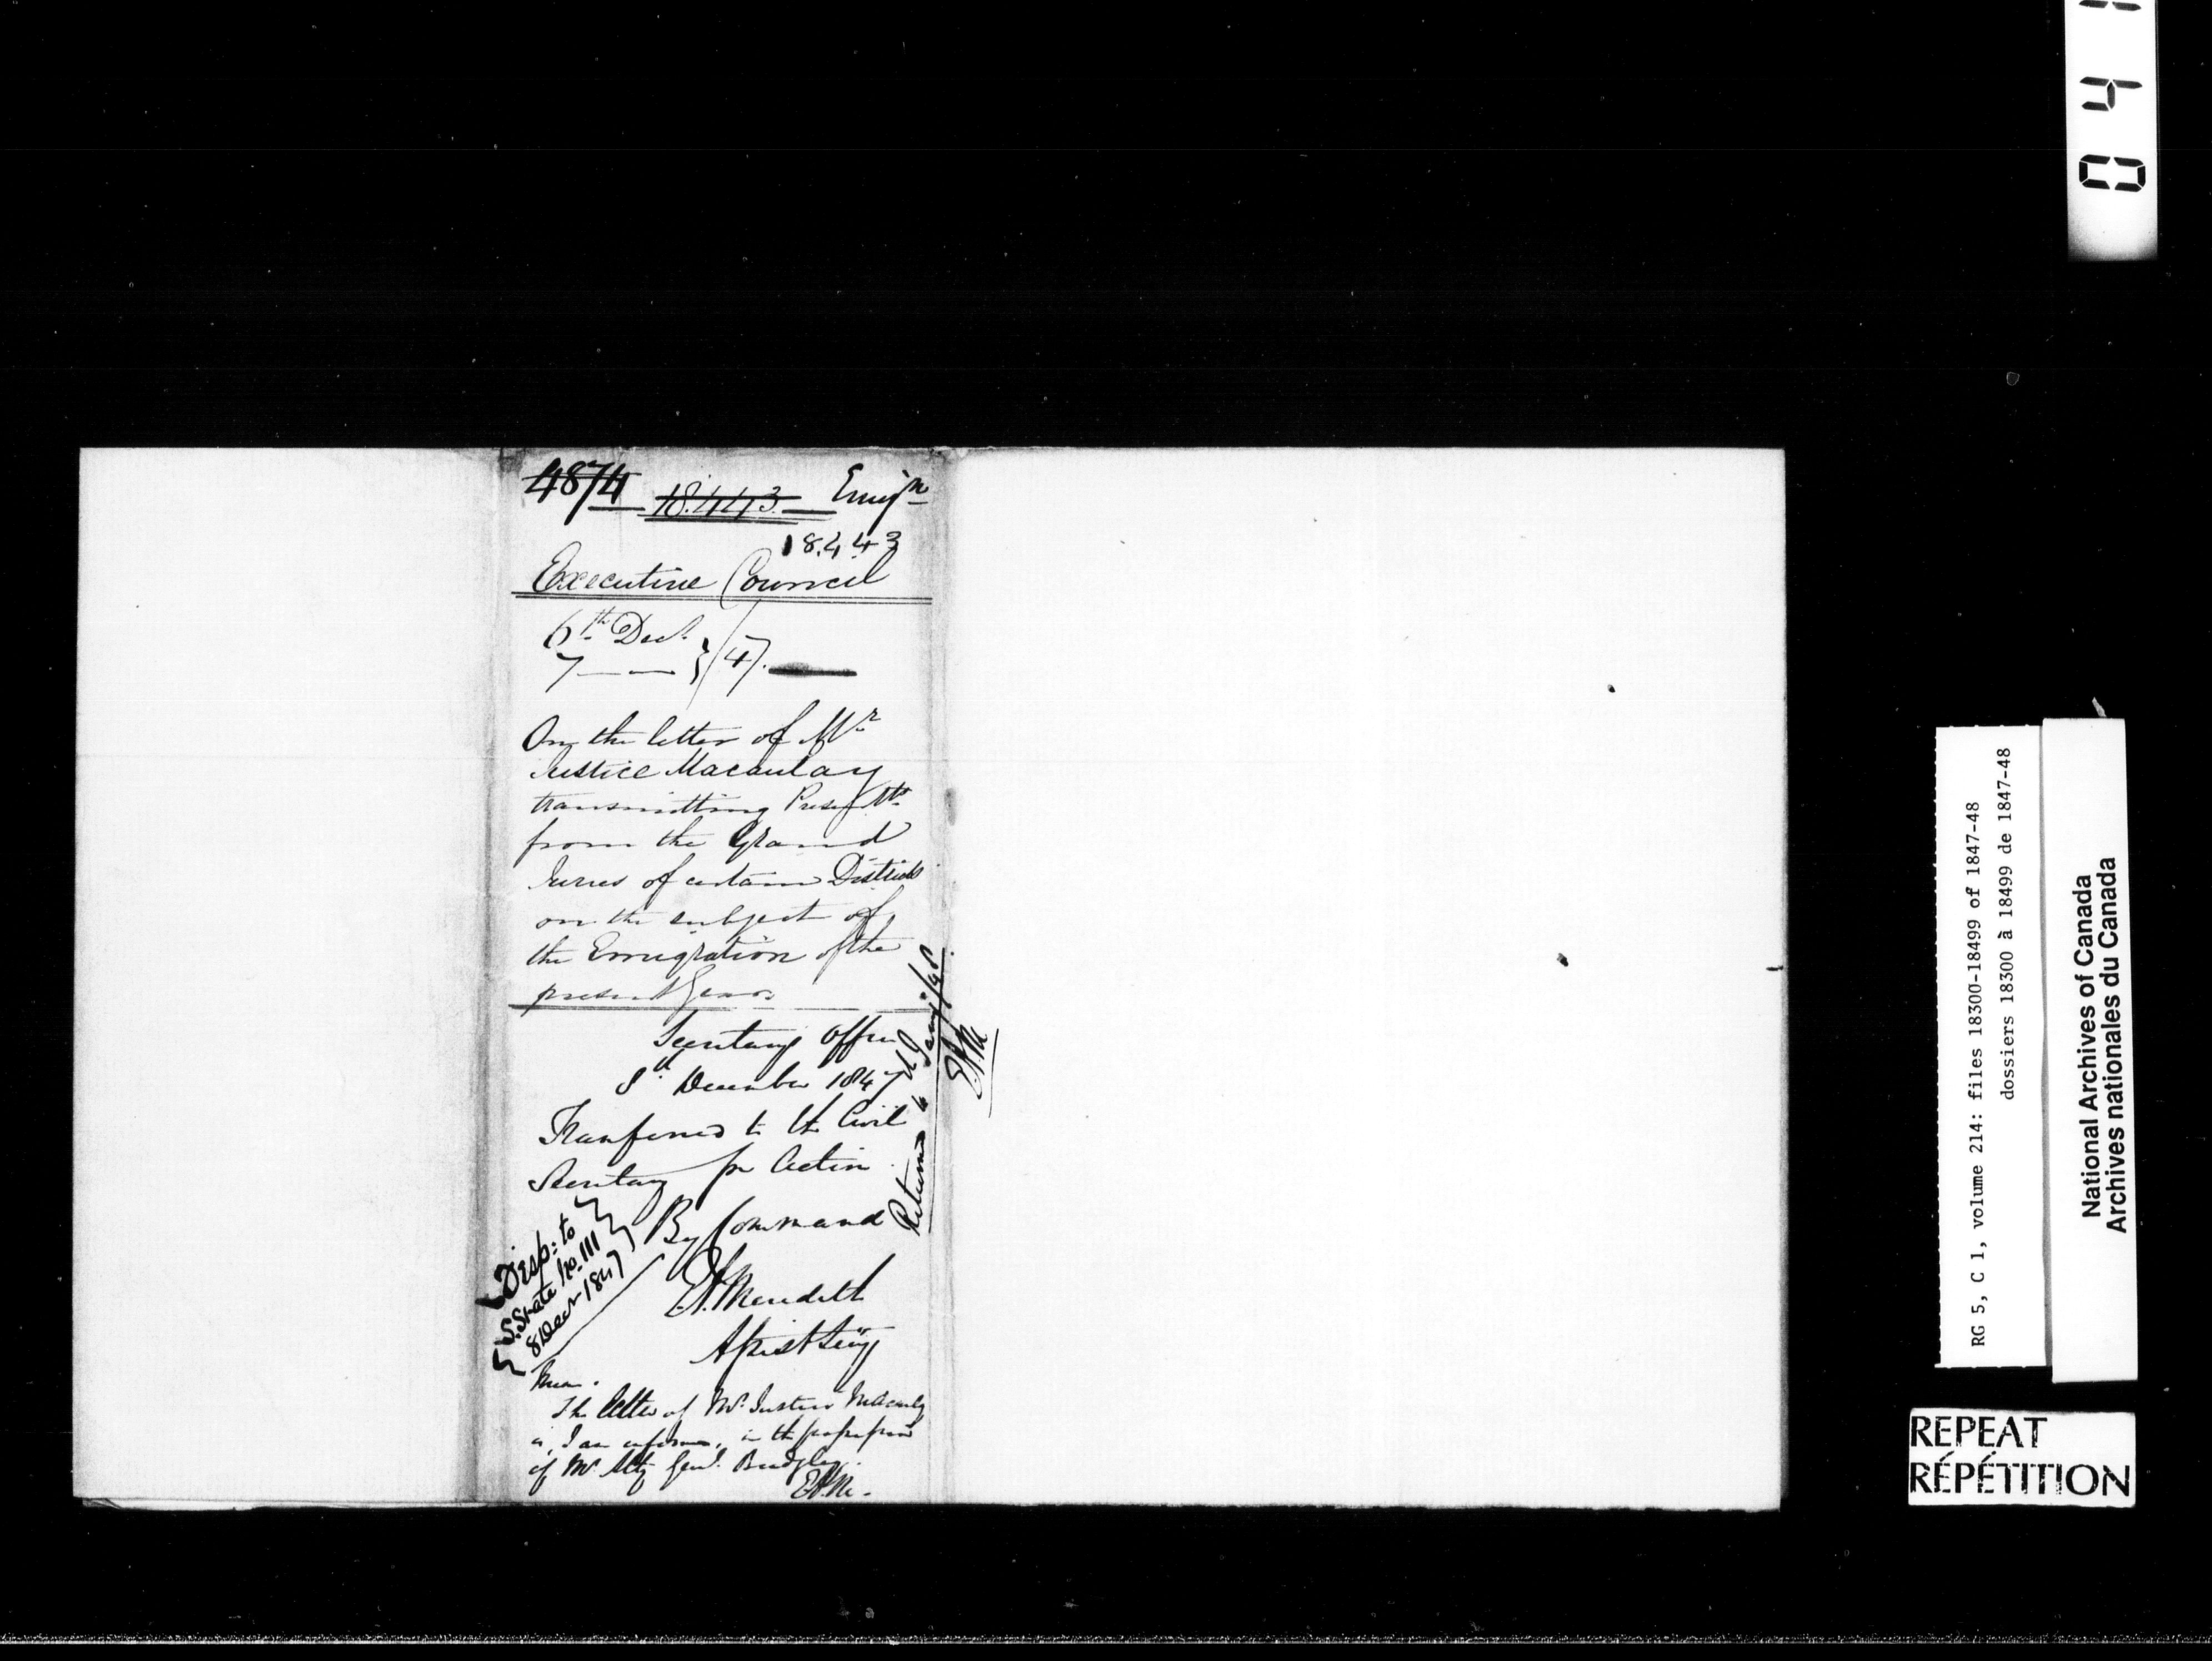 4874 18.443. Emign
18.443
Executive Council
6th Decr
7 — — } /47.
On the letter of Mr
Justice Macaulay
transmitting Presentmts
from the Grand
Juries of certain Districts
on the subject of
the Emigration of the
present Year
Secretary's Office
8th December 1847
Transferred to the Civil
Secretary for Action
By Command
E.A. Meredith
Asist Secy
Disp: to
S. State No. 111
8 Decr 1847
Mem.
The letter of Mr. Justice Macaulay
is, I am informed, in the possession
of Mr Atty Genl. Badgley.
E.A.M.
Returned
Jany /48.
E.A.M
041
RG 5, C 1, volume 214: files 18300-18499 of 1847-48
dossiers 18300 à 18499 de 1847-48
National Archives of Canada
Archives nationales du Canada
REPEAT
RÉPÉTITION